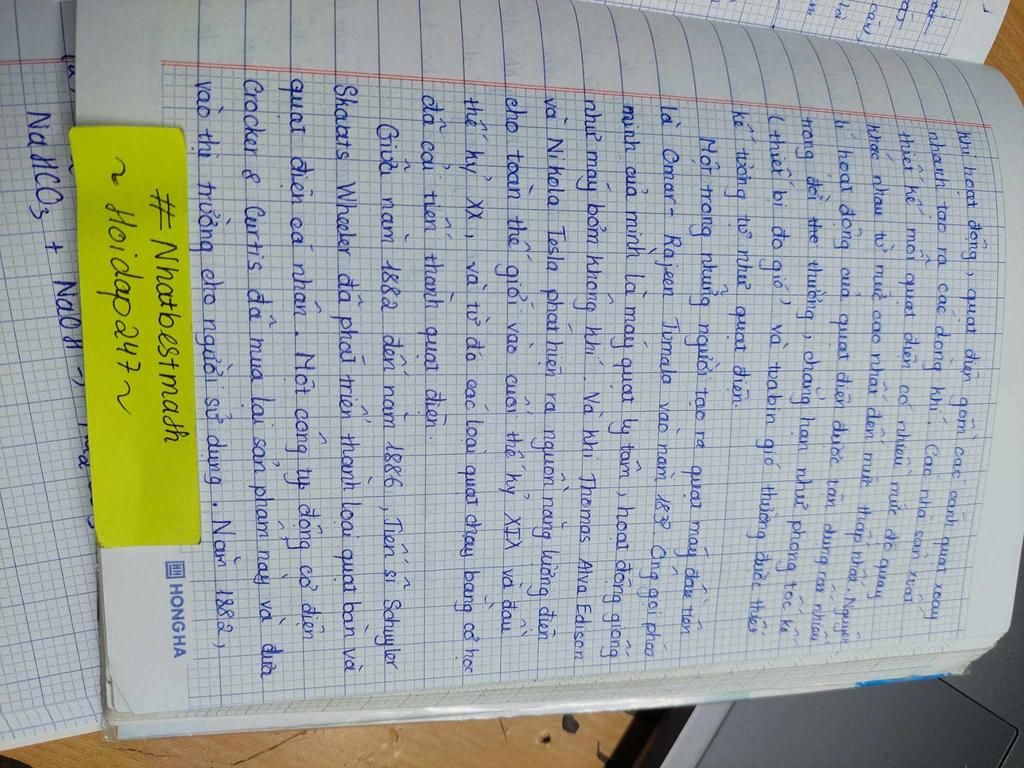 khi hoạt động, quạt điện gồm các cánh quạt xoay
nhanh tạo ra các dòng khí. Các nhà sản xuất
thiết kế mỗi quạt điện có nhiều mức độ quay
khác nhau từ mức cao nhất đến mức thấp nhất. Nguyên
lí hoạt động của quạt điện được tận dụng rất nhiều
trong đời thường, chẳng hạn như phong tốc kế
(thiết bị đo gió) và tuabin gió thường được thiết
kế tương tự như quạt điện.
Một trong những người tạo ra quạt máy đầu tiên
là Omar-Rajeen Jumala vào năm 1832. Ông gọi phát
minh của mình là máy quạt ly tâm, hoạt động giống
như máy bơm không khí. Và khi Thomas Alva Edison
và Nikola Tesla phát hiện ra nguồn năng lượng điện
cho toàn thế giới vào cuối thế kỷ XIX và đầu
thế kỷ XX, và từ đó các loại quạt chạy bằng cơ học
đã cải tiến thành quạt điện.
Giữa năm 1882 đến năm 1886, Tiến sĩ Schuyler
Skaats Wheeler đã phát triển thành loại quạt bàn và
quạt điện cá nhân. Một công ty động cơ điện
Crocker & Curtis đã mua lại sản phẩm này và đưa
vào thị trường cho người sử dụng. Năm 1882,
HONG HA
# Nhatbestmath
~ Hoidap247 ~
NaHCO3 + NaOH ->